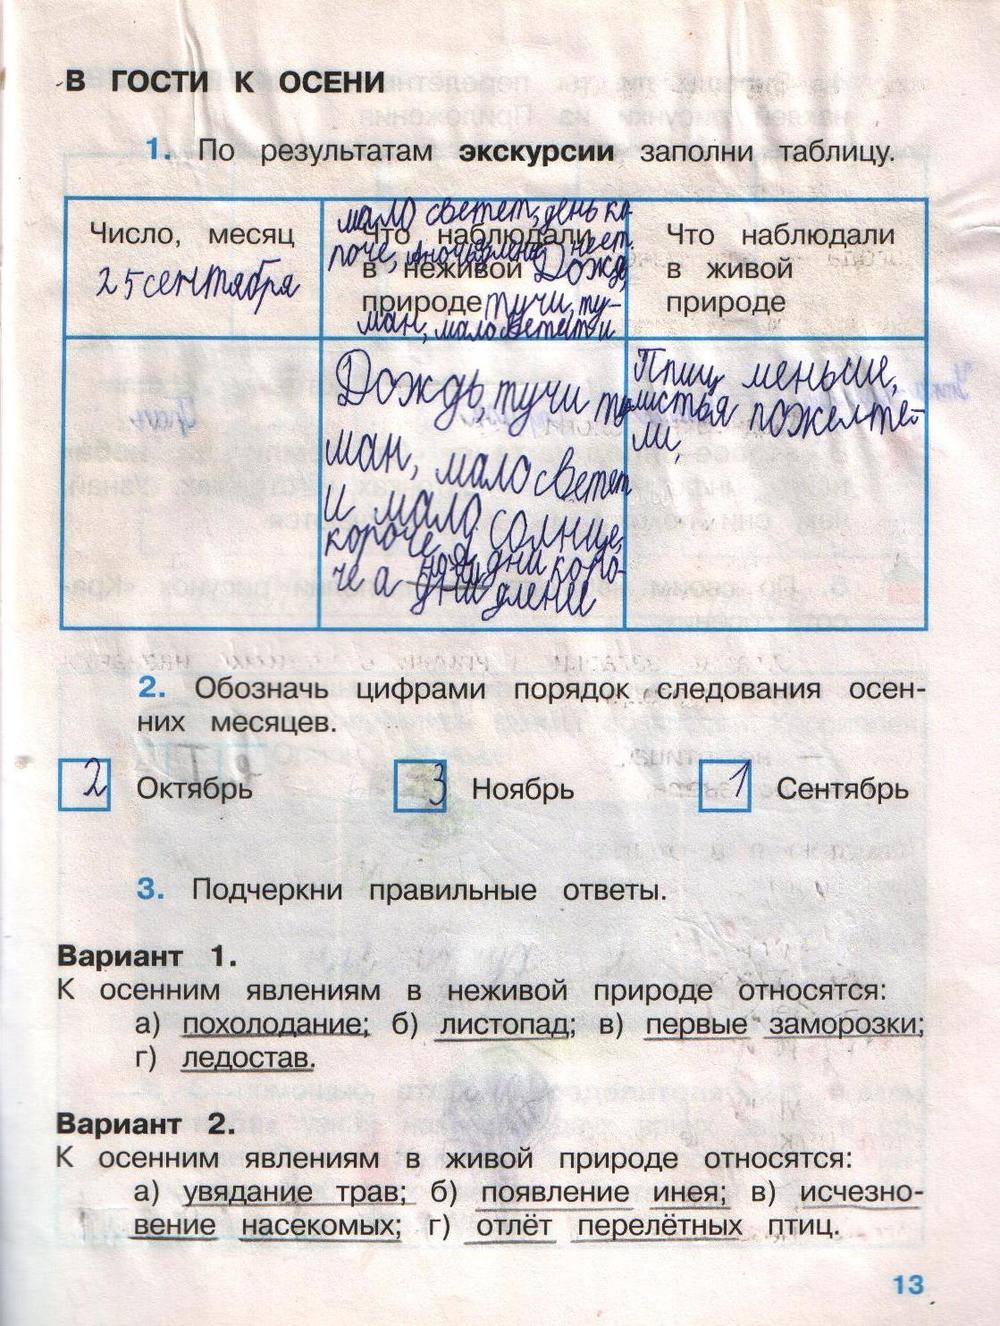 В ГОСТИ К ОСЕНИ
1. По результатам экскурсии заполни таблицу.
Число, месяц
25 сентября
мало светет, день ко
роче,
Что наблюдали
в неживой
природе
Дождь
тучи, ту-
ман, мало светет и
Что наблюдали
в живой
природе
Дождь, тучи ту
ман, мало светет
и мало солнце,
короче, а дни коро-
че а дни длене
Птиц меньше,
листья пожелте-
ли,
2. Обозначь цифрами порядок следования осен-
них месяцев.
2 Октябрь 3 Ноябрь 1 Сентябрь
3. Подчеркни правильные ответы.
Вариант 1.
К осенним явлениям в неживой природе относятся:
а) похолодание; б) листопад; в) первые заморозки;
г) ледостав.
Вариант 2.
К осенним явлениям в живой природе относятся:
а) увядание трав; б) появление инея; в) исчезно-
вение насекомых; г) отлёт перелётных птиц.
13